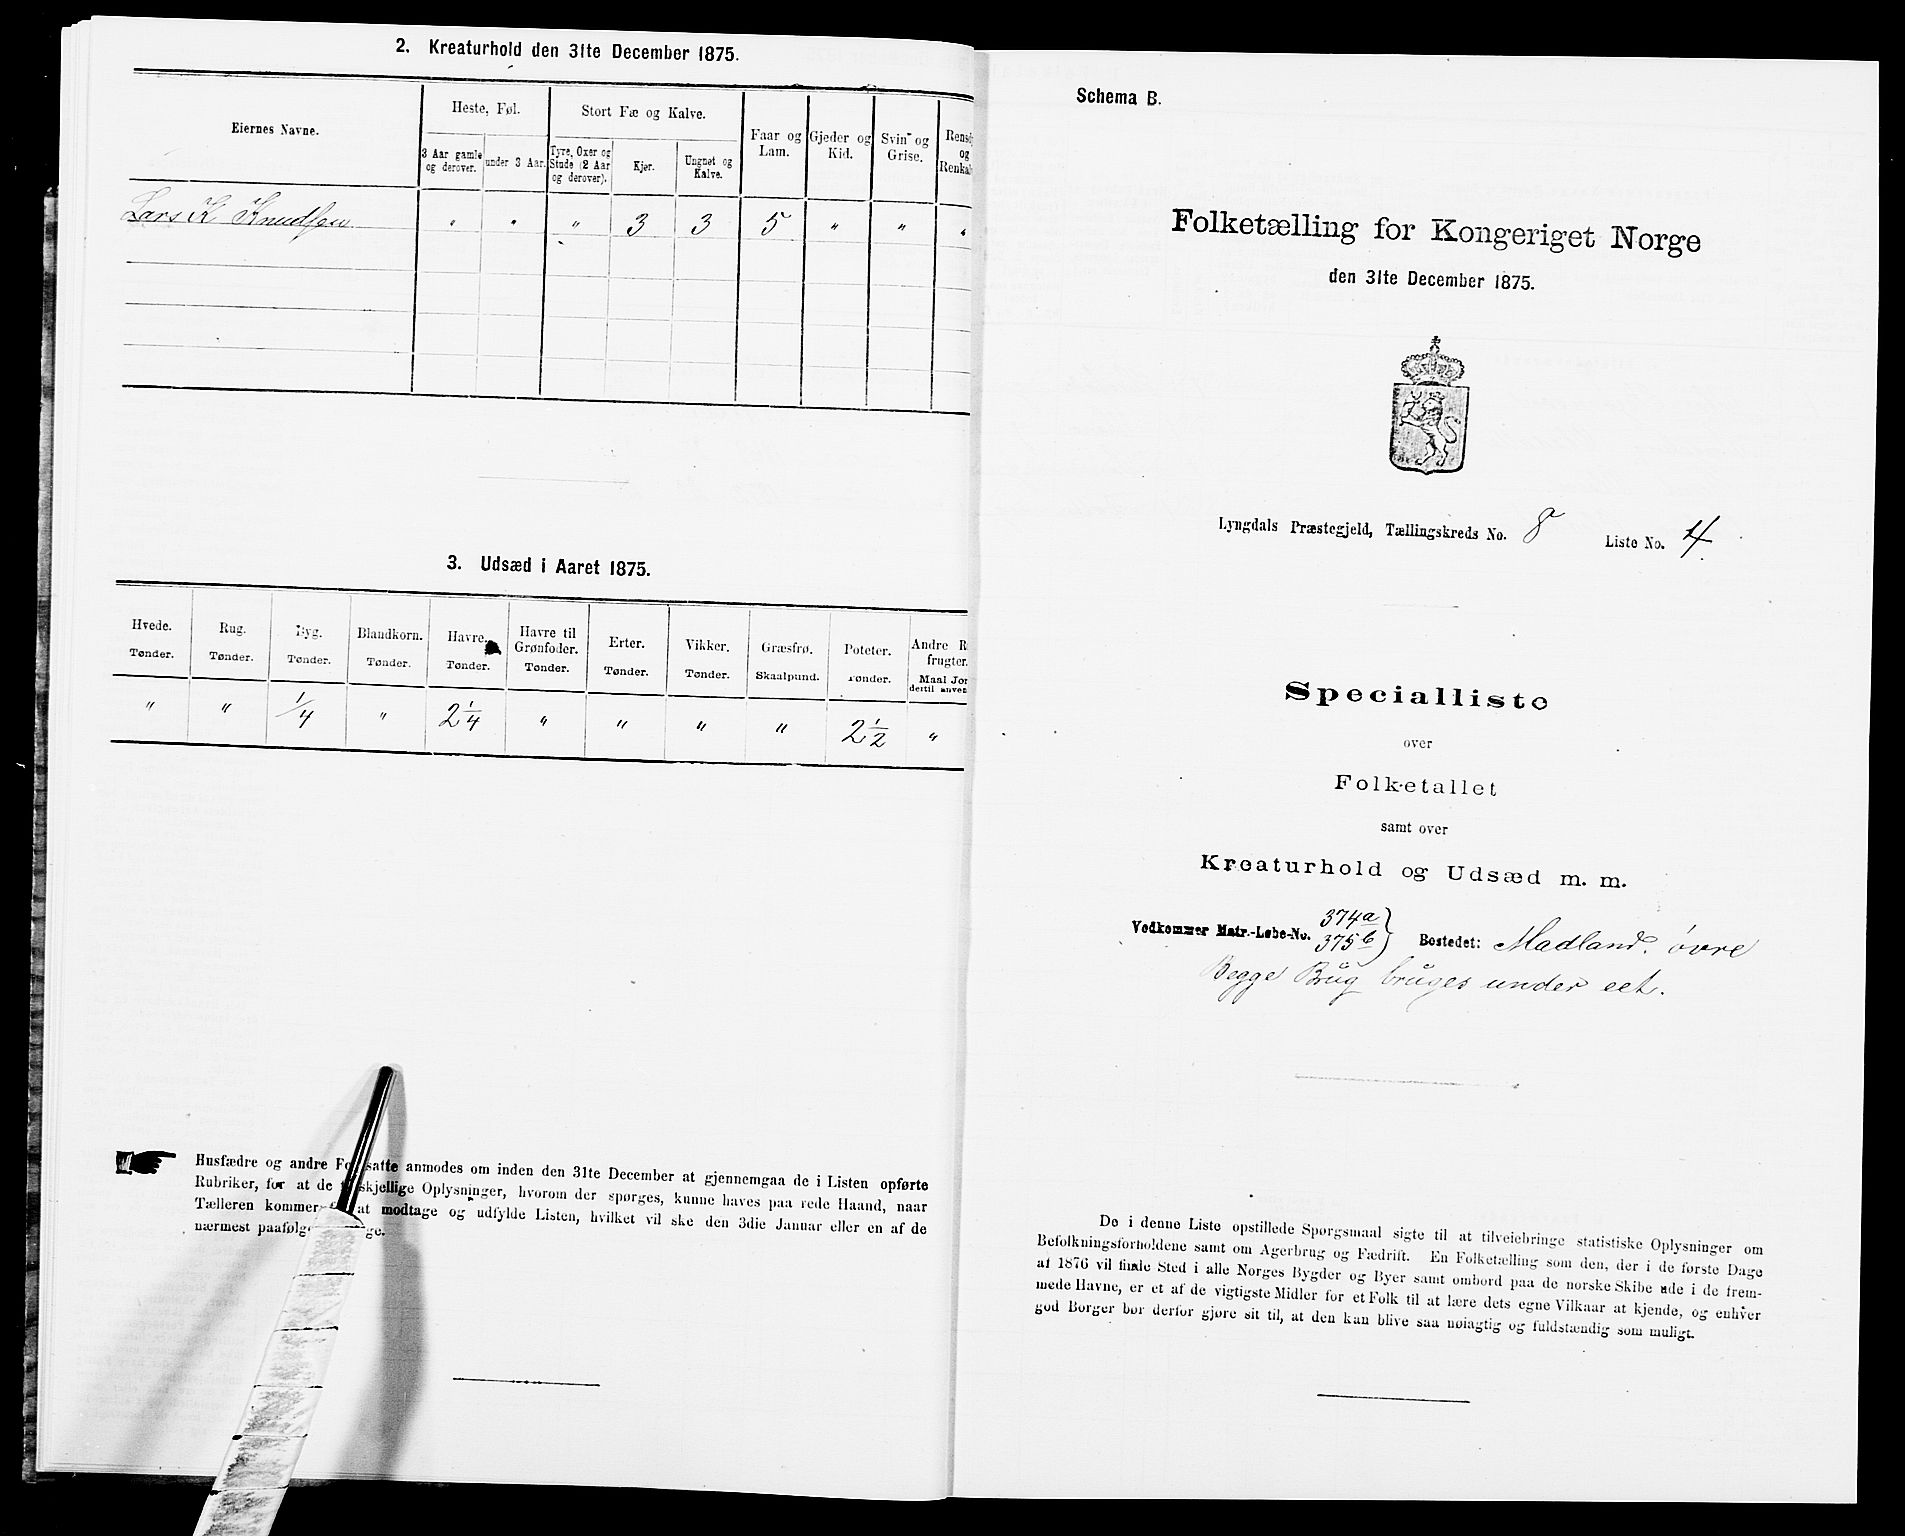 2. Kreaturhold den 31te December 1875.
Eiernes Navne.
Heste, Føl.
3 Aar gamle og derover.
under 3 Aar.
Stort Fæ og Kalve.
Tyre, Oxer og Stude (2 Aar og derover).
Kjør.
Ungnøt og Kalve.
Faar og Lam.
Gjeder og Kid.
Svin og Grise.
Rensd
og
Renkal
Lars K Knudsen " " " 3 3 5 " " "
3. Udsæd i Aaret 1875.
Hvede. Rug. Byg. Blandkorn. Havre. Havre til Grønfoder. Erter. Vikker. Græsfrø. Poteter. Andre R frugter.
Tønder. Tønder. Tønder. Tønder. Tønder. Tønder. Tønder. Tønder. Skaalpund. Tønder. Maal Jor dertil anven
" " 1/4 " 2 1/4 " " " " 2 1/2 "
Husfædre og andre Foresatte anmodes om inden den 31te December at gjennemgaa de i Listen opførte
Rubriker, for at de forskjellige Oplysninger, hvorom der spørges, kunne haves paa rede Haand, naar
Tælleren kommer for at modtage og udfylde Listen, hvilket vil ske den 3die Januar eller en af de
nærmest paafølgende Dage.
Schema B.
Folketælling for Kongeriget Norge
den 31te December 1875.
Lyngdals Præstegjeld, Tællingskreds No. 8 Liste No. 4.
Specialliste
over
Folketallet
samt over
Kreaturhold og Udsæd m. m.
Vedkommer Matr.-Løbe-No. 374a 375b } Bostedet: Madland. øvre
Begge Brug bruges under eet.
De i denne Liste opstillede Spørgsmaal sigte til at tilveiebringe statistiske Oplysninger om
Befolkningsforholdene samt om Agerbrug og Fædrift. En Folketælling som den, der i de første Dage
af 1876 vil finde Sted i alle Norges Bygder og Byer samt ombord paa de norske Skibe ude i de frem-
mede Havne, er et af de vigtigste Midler for et Folk til at lære dets egne Vilkaar at kjende, og enhver
god Borger bør derfor gjøre sit til, at den kan blive saa nøiagtig og fuldstændig som muligt.